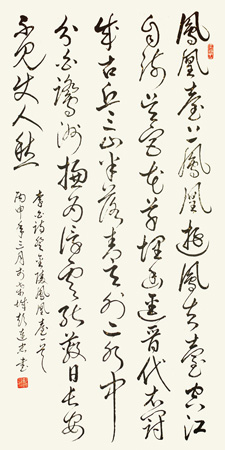 鳳凰臺上鳳凰遊鳳去臺空江
自流吳宮花草埋幽徑晉代衣冠
成古丘三山半落青天外二水中
分白鷺洲總為浮雲能蔽日長安
不見使人愁
李白詩登金陵鳳凰臺一首
丙申年三月於 城彭 書